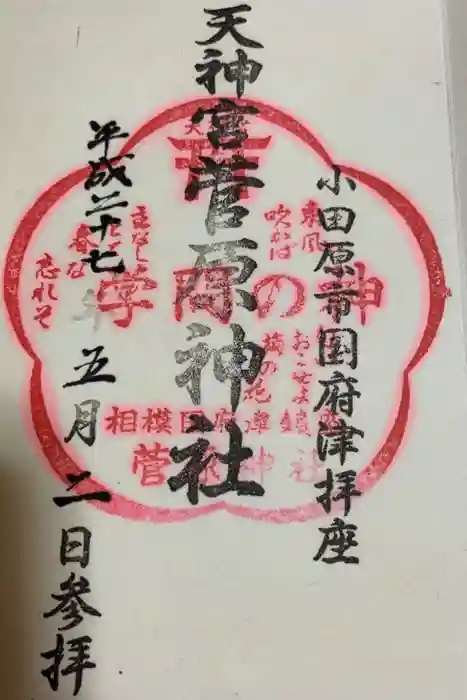 小田原市国府津拝座
天神宮菅原神社
平成二十七年五月二日参拝
学問の神
東風
吹かば
おこせよ
梅の花
主なし
春な
忘れそ
相模国府津鎮座
菅原神社